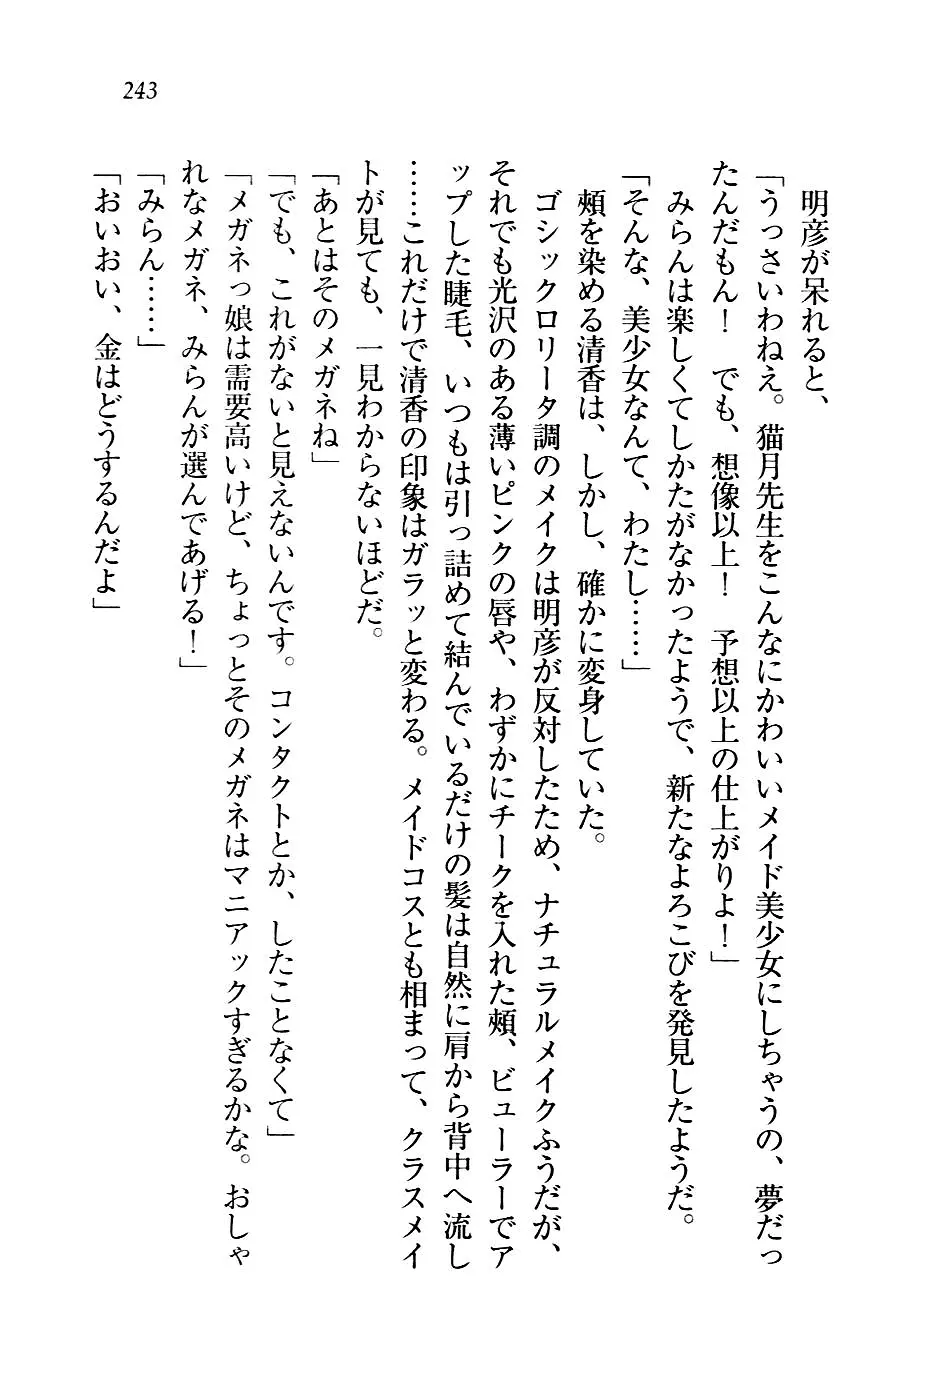 243
明彦が呆れると、
「うっさいわねえ。猫月先生をこんなにかわいいメイド美少女にしちゃうの、夢だっ
たんだもん！　でも、想像以上！　予想以上の仕上がりよ！」
みらんは楽しくてしかたがなかったようで、新たなよろこびを発見したようだ。
「そんな、美少女なんて、わたし……」
頬を染める清香は、しかし、確かに変身していた。
ゴシックロリータ調のメイクは明彦が反対したため、ナチュラルメイクふうだが、
それでも光沢のある薄いピンクの唇や、わずかにチークを入れた頬、ビューラーでア
ップした睫毛、いつもは引っ詰めて結んでいるだけの髪は自然に肩から背中へ流し
……これだけで清香の印象はガラッと変わる。メイドコスとも相まって、クラスメイ
トが見ても、一見わからないほどだ。
「あとはそのメガネね」
「でも、これがないと見えないんです。コンタクトとか、したことなくて」
「メガネっ娘は需要高いけど、ちょっとそのメガネはマニアックすぎるかな。おしゃ
れなメガネ、みらんが選んであげる！」
「みらん……」
「おいおい、金はどうするんだよ」